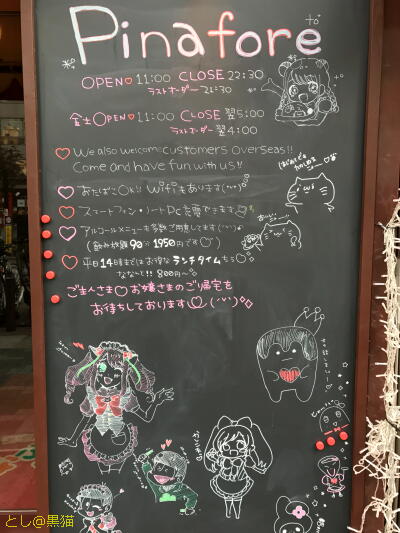 Pinafore
OPEN♡11:00 CLOSE 22:30
ラストオーダー 21:30
金土OPEN♡11:00 CLOSE 翌5:00
ラストオーダー 翌4:00
♡ We also welcome customers overseas!!
Come and have fun with us!!
♡ おたばこOK!! Wifiもあります
♡ スマートフォン・ノートPC充電できます
♡ アルコールメニューも多数ご用意してます
(飲み放題90分1950円です♡)
♡ 平日14時まではお得なランチタイムもち♡
なななんと!! 800円〜
ご主人さま♡お嬢さまのご帰宅を
お待ちしております♡
とし@黒猫